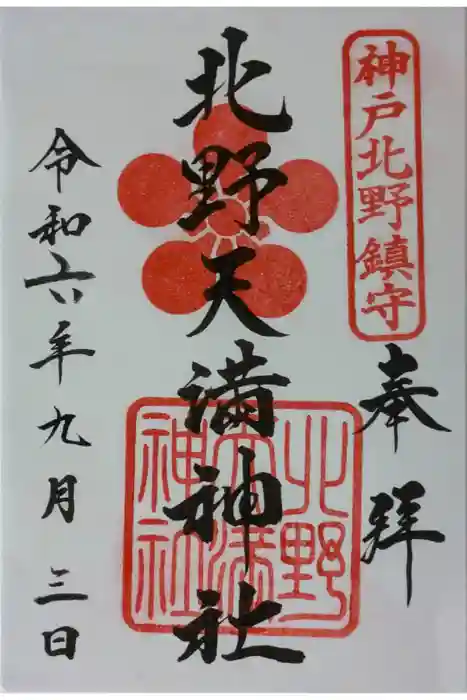 神戸北野鎮守
奉拝
北野天満神社
北野
天満
神社
令和六年九月三日